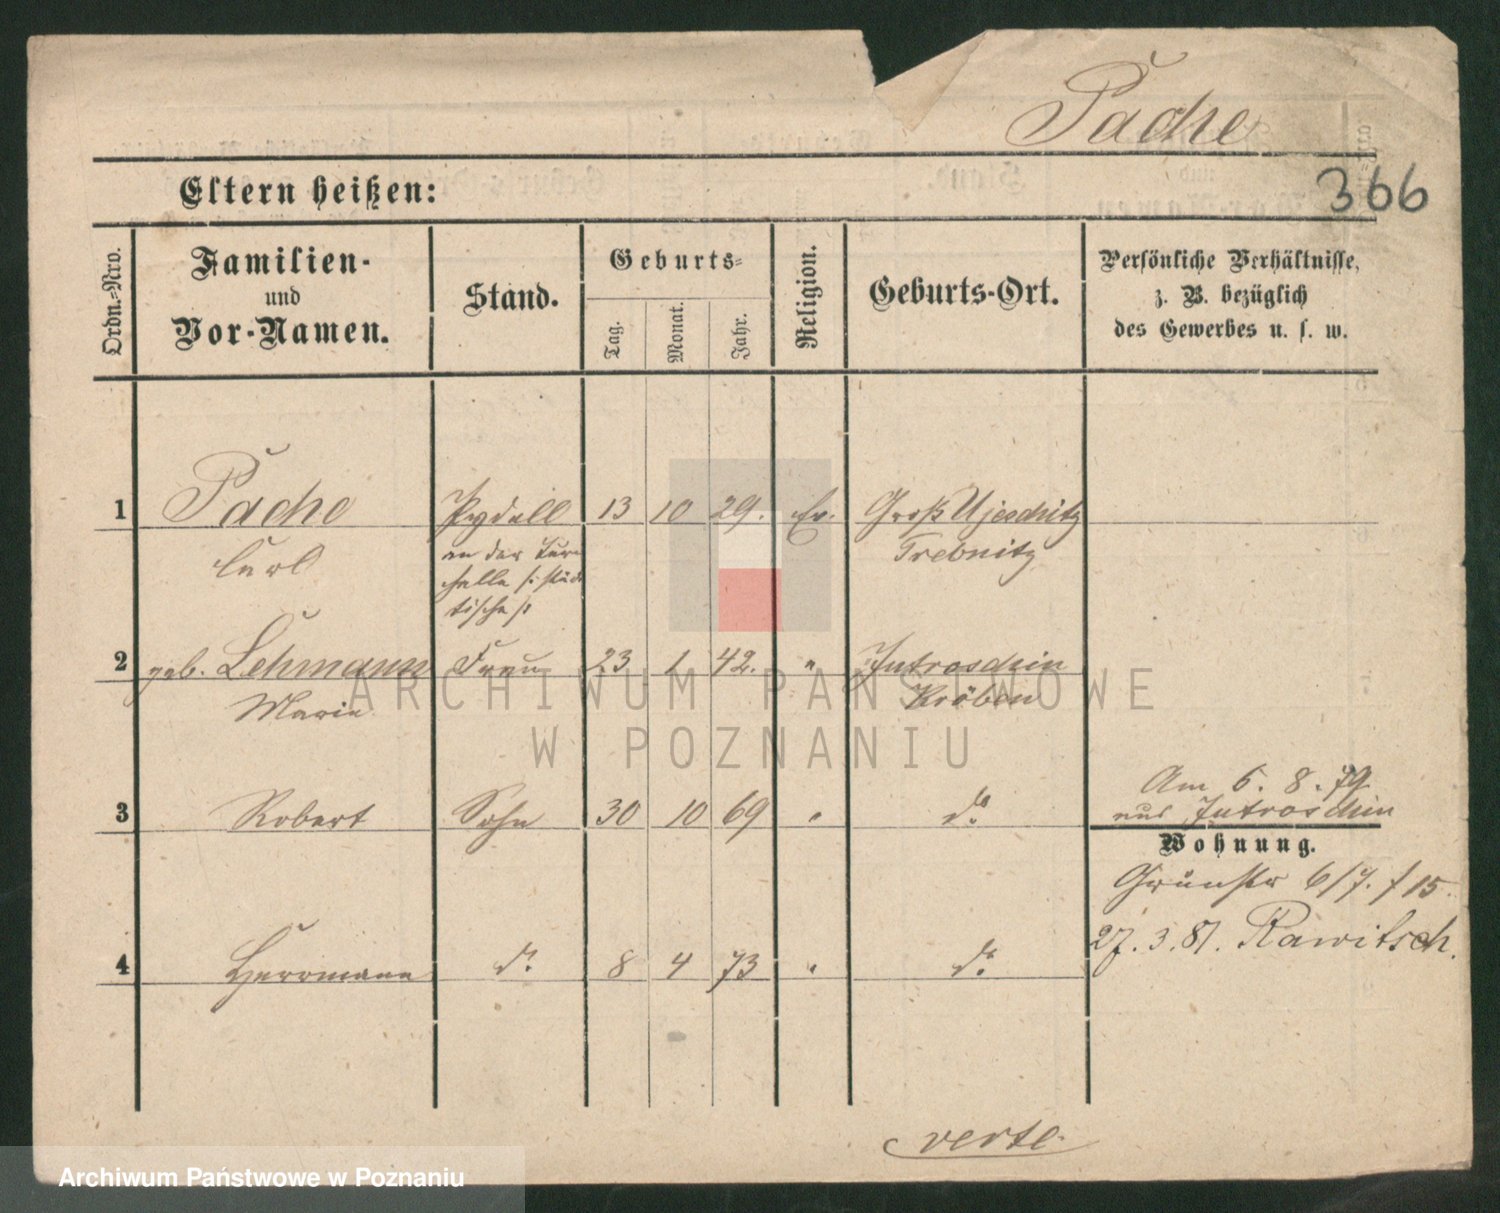 Pache
366
Eltern heißen:
Ordn.-Nro.
Familien-
und
Vor-Namen.
Stand.
Geburts-
Tag.
Monat.
Jahr.
Religion.
Geburts-Ort.
Persönliche Verhältnisse,
z. B. bezüglich
des Gewerbes u. s. w.
1 Pache Pedell 13 10 29. Ev. Groß Ujeschitz
Carl an der Turn Trebnitz
halle /: städ
tische :/
2 geb. Lehmann Frau 23 1 42. " Jutroschin
Marie Kröben
Am 6. 8. 79
aus Jutroschin
3 Robert Sohn 30 10 69 " do.
Wohnung.
Grünstr 6/7. / 15.
27. 3. 81. Rawitsch.
4 Herrmann do. 8 4 73 " do.
verte.
ARCHIWUM PAŃSTWOWE
W POZNANIU
Archiwum Państwowe w Poznaniu